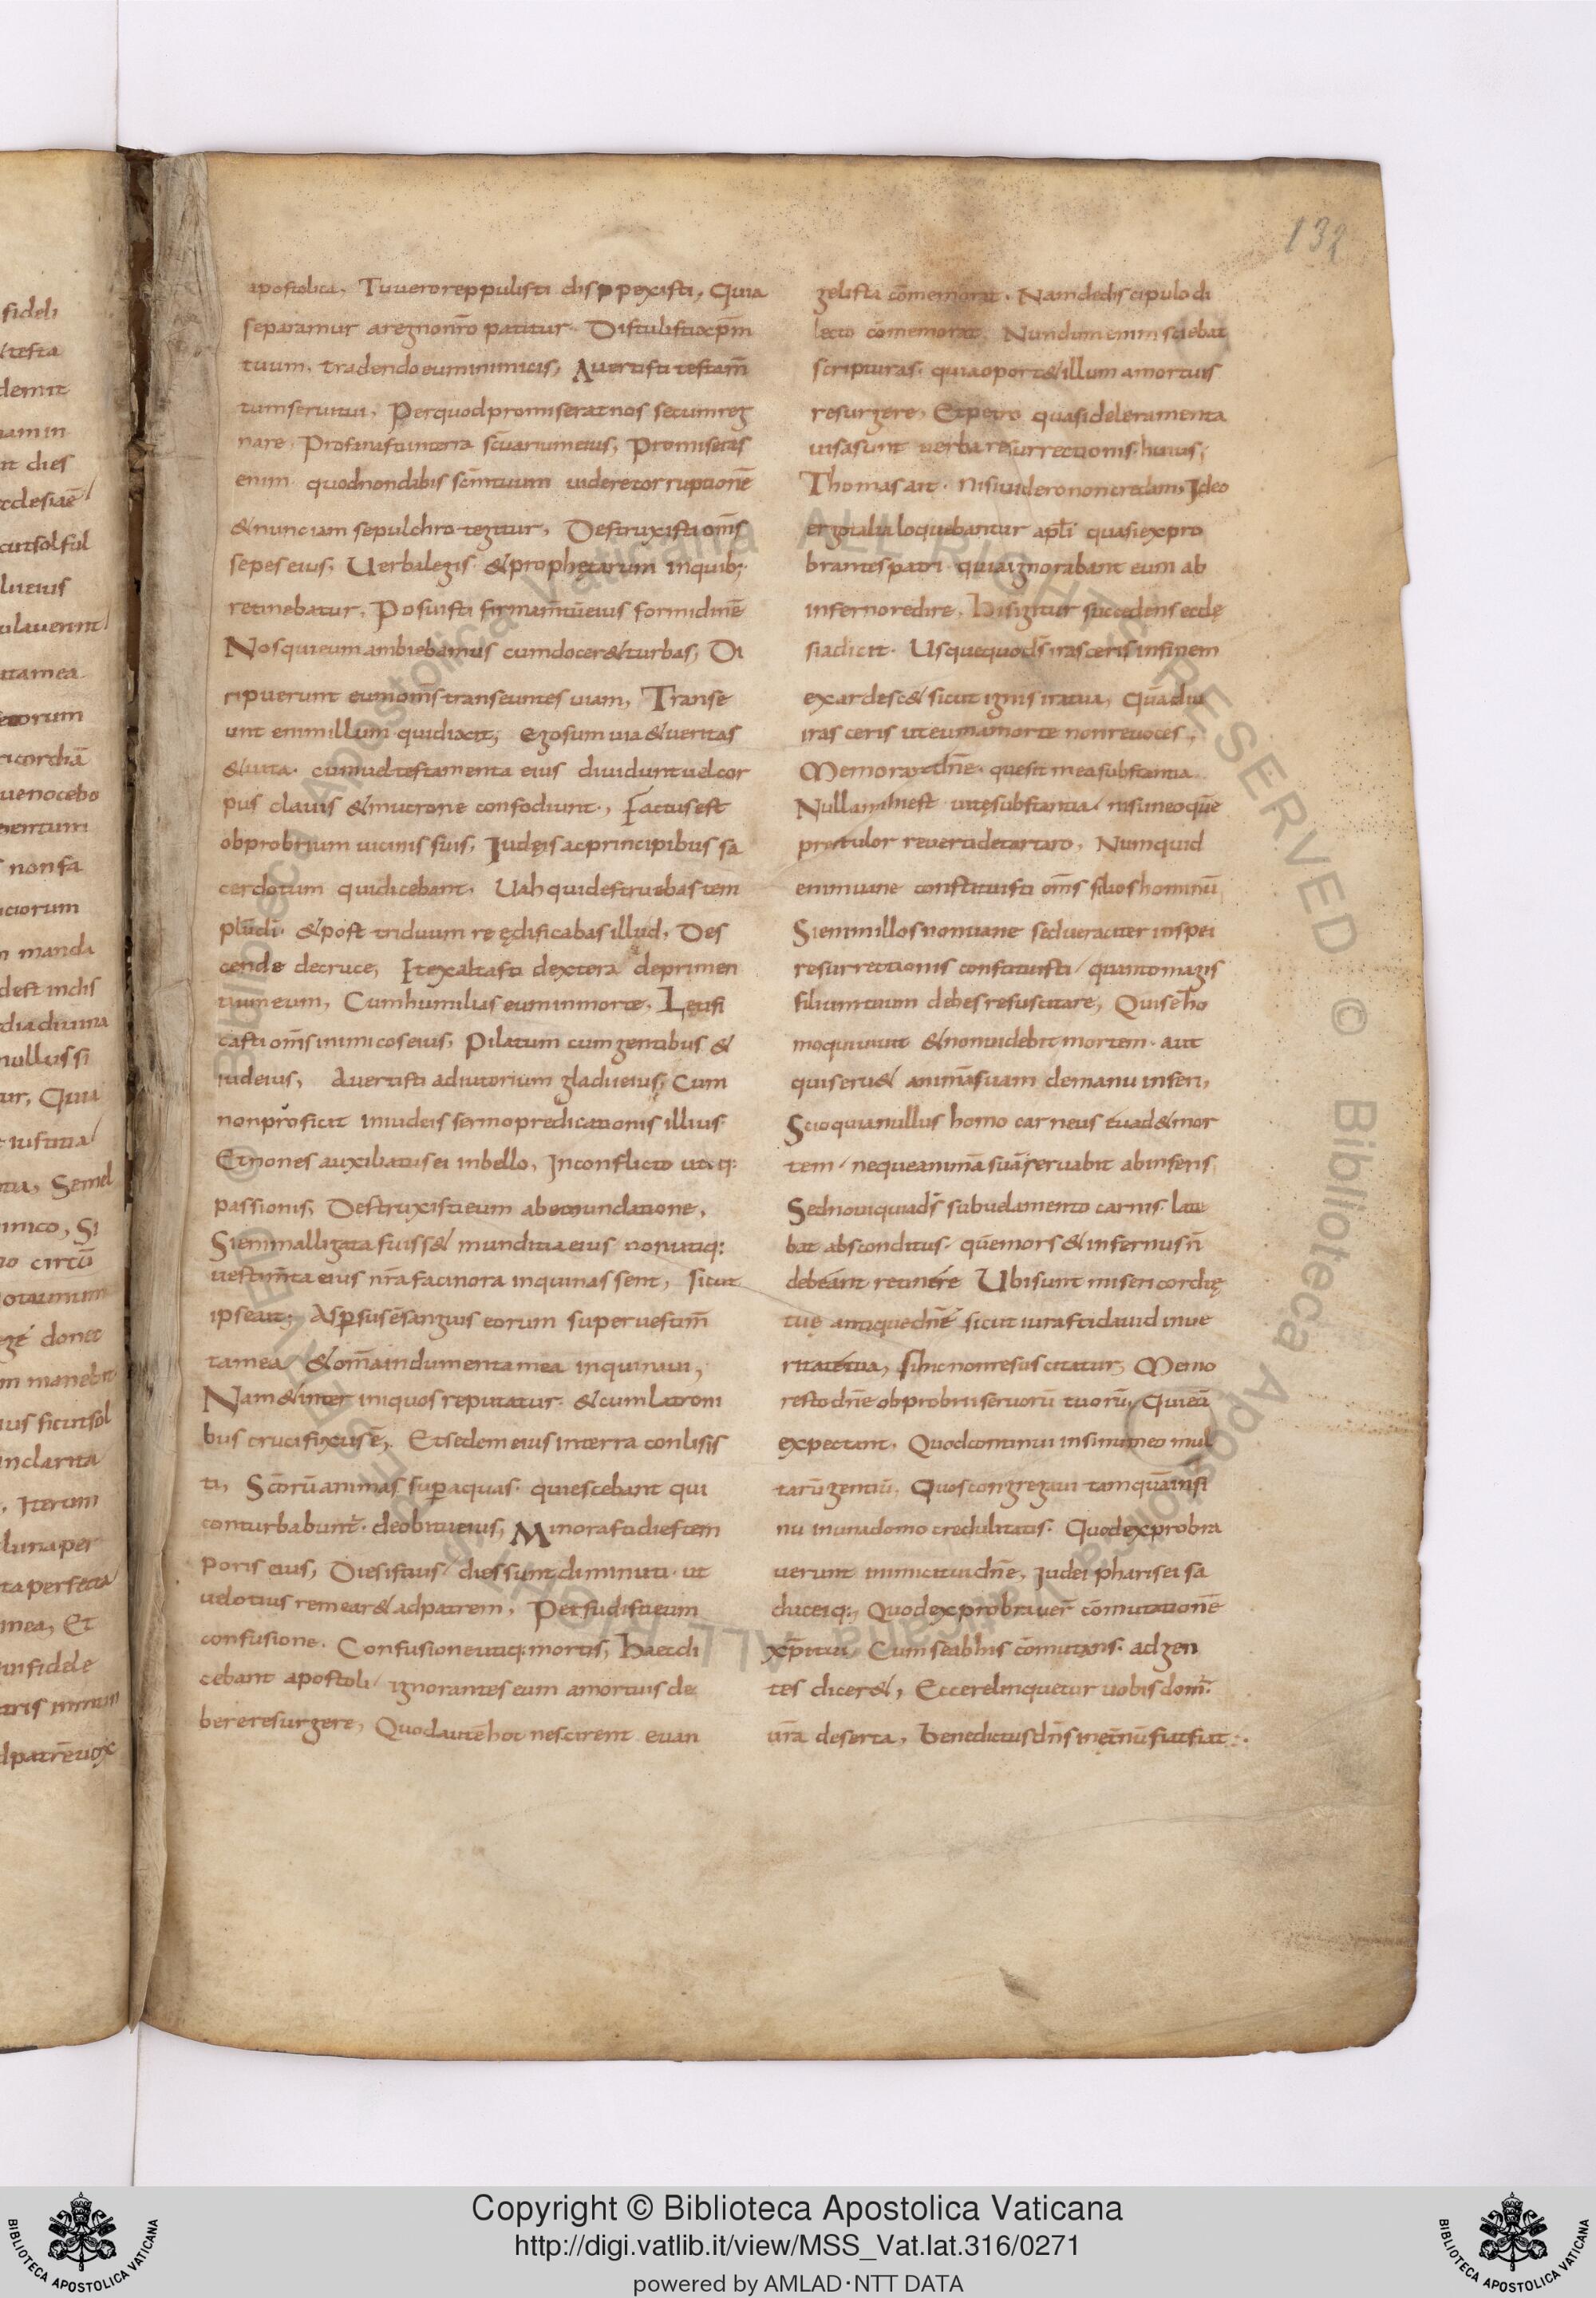 132
apostolica. Tu uero reppulisti & dispexisti, Quia
separamur a regno nr̄o patitur. Distulisti xp̄m
tuum. tradendo eum inimicis, Auertisti testam̄
tum serui tui, Per quod promiserat nos secum reg
nare. Profanasti in terra sc̄uarium eius, Promiseras
enim quod non dabis sc̄m tuum uidere corruptionē
& nunc iam sepulchro tegitur, Destruxisti om̄s
sepes eius, Uerba legis & prophetarum in quib;
retinebatur. Posuisti firmam̄tū eius formidinē
Nos qui eum ambiebamus cum docer& turbas, Di
ripuerunt eum om̄s transeuntes uiam, Transe
unt enim illum qui dixit; Ego sum uia & ueritas
& uita. cum uel testamenta eius diuidunt uel cor
pus clauis & mucrone confodiunt., Factus est
obprobrium uicinis suis, Iudęis ac principibus sa
cerdotum qui dicebant. Uah qui destruebas tem
plū di. & post triduum reędificabas illud, Des
cende de cruce, Et exaltasti dextera deprimen
tium eum, Cum humilias eum in morte. Lętifi
casti om̄s inimicos eius, Pilatum cum gentibus &
iudeius, Auertisti adiutorium gladii eius, Cum
non proficit in iudeis sermo predicationis illius.
Et non es auxiliatus ei in bello, In conflicto utiq:
passionis, Destruxisti eum ab emundatione,
Si enim alligata fuiss& munditia eius non utiq:
uestim̄ta eius nr̄a facinora inquinassent, sicut
ipse ait; Aspsus ē sanguis eorum super uestim̄
ta mea & om̄a indumenta mea inquinaui,
Nam & inter iniquos reputatur. & cum latroni
bus crucifixus ē, Et sedem eius in terra conlisis
ti, Sc̄orū animas sup aquas. quiescebant qui
conturbabunt̄. de obitu eius, Minorasti dies tem
poris eius, Dies istius dies sunt diminuti. ut
uelotius remear& ad patrem, Perfudisti eum
confusione. Confusione utiq: mortis, Haec di
cebant apostoli ignorantes eum a mortuis de
bere resurgere, Quod autē hoc nescirent euan
gelista cōmemorat. Nam de discipulo di
lecto cōmemorat. Nundum enim sciebat
scripturas. quia oport& illum a mortuis
resurgere, Et petro quasi deleramenta
uisa sunt uerba resurrectionis huius,
Thomas ait. Nisi uidero non credam, Ideo
ergo talia loquebantur apl̄i quasi expro
brantes patri quia ignorabant eum ab
inferno redire. His igitur succedens ecclę
sia dicit. Usquequo ds̄ irasceris in finem
exardesc& sicut ignis ira tua, Quā diu
irasceris ut eum a morte non reuoces,
Memorare dn̄e. que sit mea substantia.
Nulla mihi est uitę substantia. nisi in eo quē
prestulor reuerti de tartaro, Numquid
enim uane constituisti om̄s filios hominū
Si enim illos non uane sed ueraciter in spei
resurrectionis constituisti quanto magis
filium tuum debes resuscitare, Quis ē ho
mo qui uiuit & non uidebit mortem. aut
quis eru& animā suam de manu inferi,
Scio quia nullus homo carneus euad& mor
tem. neque animā suā seruabit ab inferis
Sed noui quia ds̄ sub uelamento carnis. late
bat absconditus. quē mors & infernus n̄
debeant retinere Ubi sunt misericordię
tuę antique dn̄e sicut iurasti dauid in ue
ritate tua, si hic non resuscitatur, Memo
resto dn̄e obprobrii seruorū tuorū, Qui eū
expectant, Quod continui in sinu meo mul
tarū gentiū. Quos congregaui tamquā in si
nu in una domo credulitatis. Quod exprobra
uerunt inimici tui dn̄e, Iudei pharisei sa
duceiq:, Quod exprobrauer̄ cōmutationē
xp̄i tui Cum se ab his cōmutans. ad gen
tes dicer&, Ecce relinquetur uobis dom̄.
ur̄a deserta, Benedictus dn̄s in ęt̄nū fiat fiat:.
Copyright © Biblioteca Apostolica Vaticana
http://digi.vatlib.it/view/MSS_Vat.lat.316/0271
powered by AMLAD·NTT DATA